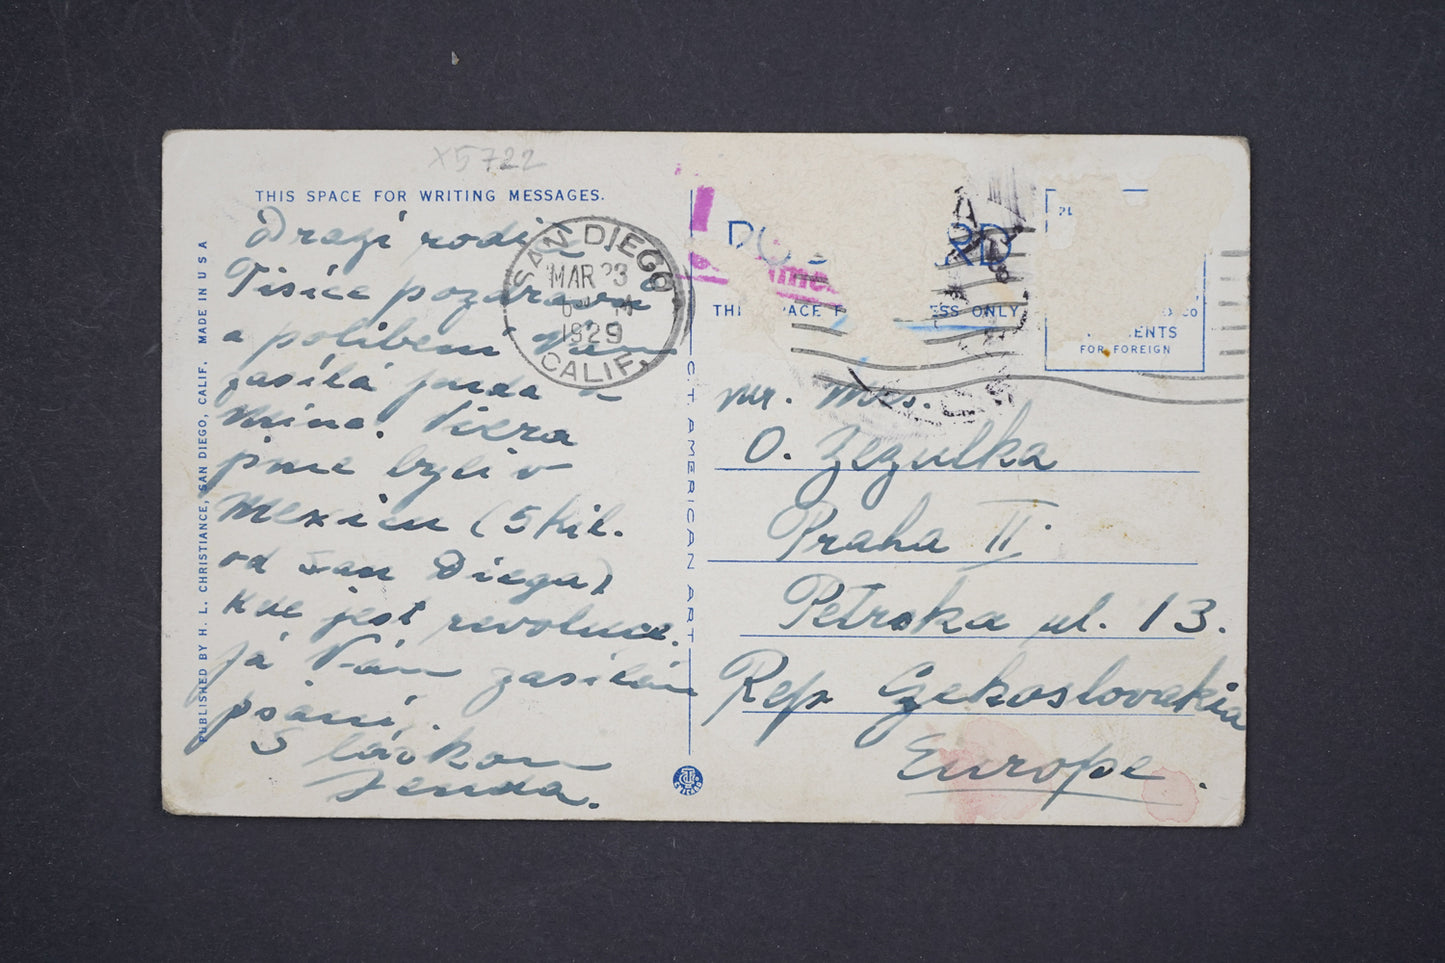 X5722
THIS SPACE FOR WRITING MESSAGES.
Drazí rodiče
Tisíce pozdravů
a políbení Vám
zasílá Jenda a
Mína. Včera
jsme byli v
Mexicu (5 kil.
od San Diega)
kde jest revoluce.
Já Vám zasílám
psaní.
S láskou
Jenda.
SAN DIEGO
MAR 23
1929
CALIF.
PUBLISHED BY H. L. CHRISTIANCE, SAN DIEGO, CALIF. MADE IN U S A
CT AMERICAN ART
ESS ONLY
ENTS
FOR FOREIGN
mr. mrs.
O. Zezulka
Praha II
Petrska ul. 13.
Rep Czekoslovakia
Europe.